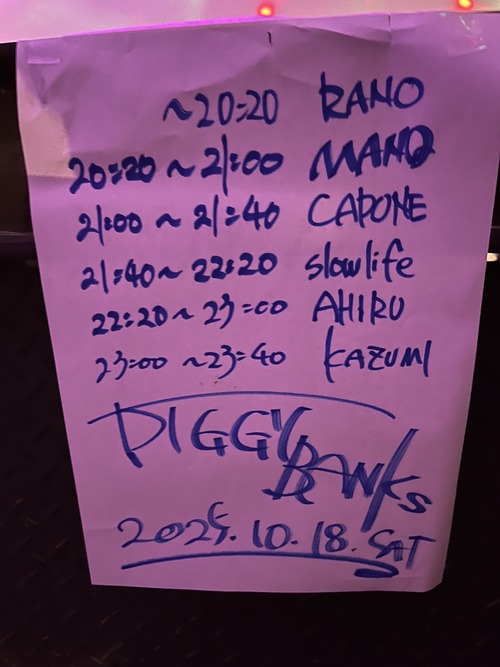 ~20:20 RANO
20:20 ~ 21:00 MANO
21:00 ~ 21:40 CAPONE
21:40~ 22:20 slowlife
22:20 ~ 23:00 AHIRU
23:00 ~23:40 KAZUMI
DIGGY
BANKS
2025.10.18.SAT